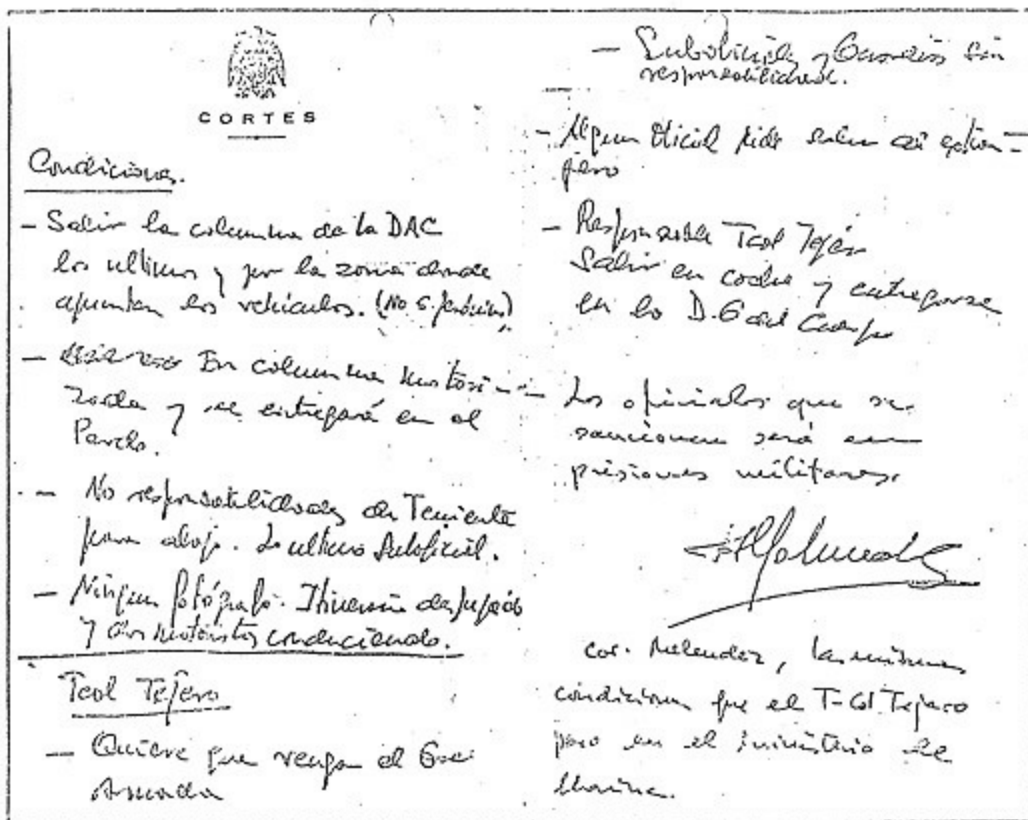 CORTES
Condiciones.
- Salir la columna de la DAC
los ultimos y por la zona donde
apuntan los vehiculos. (No S. Jerónimo)
- En columna motori-
zada y se entregará en el
Pardo.
- No responsabilidades de Teniente
para abajo. Suboficial.
- Ningun fotógrafo. Itinerario despejado
y dos motoristas conduciendo.
Tcol Tejero
- Quiere que venga el Gral
Armada
- Suboficiales y Guardias sin
responsabilidad.
- Algun Oficial pide salir al extran-
jero
- Responsable Tcol Tejero
Salir en coche y entregarse
en la D.G del Cuerpo
- Los oficiales que se
sancionen será en
prisiones militares.
Cor. Melendez, las mismas
condiciones que el T-Col Tejero
pero en el Ministerio de
Marina.